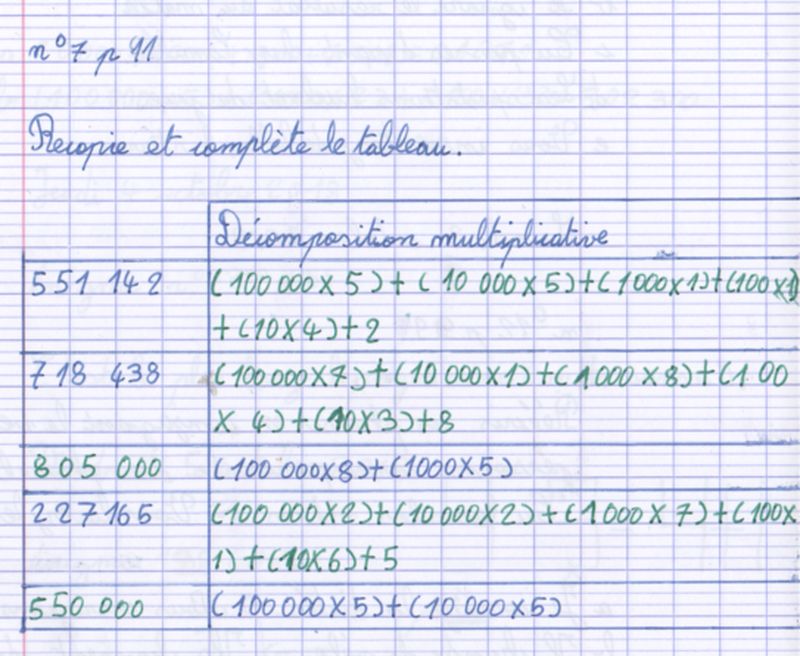 n°7 p 11
Recopie et complète le tableau.
Décomposition multiplicative
551 142 (100 000 X 5)+( 10 000 X 5)+(1000X1)+(100X1)
+(10X4)+2
718 438 (100 000X7)+(10 000X1)+(1000 X 8)+(100
X 4)+(10X3)+8
805 000 (100 000X8)+(1000X5)
227165 (100 000X2)+(10 000X2)+(1000X 7)+(100X
1)+(10X6)+5
550 000 (100 000X5)+(10 000X5)